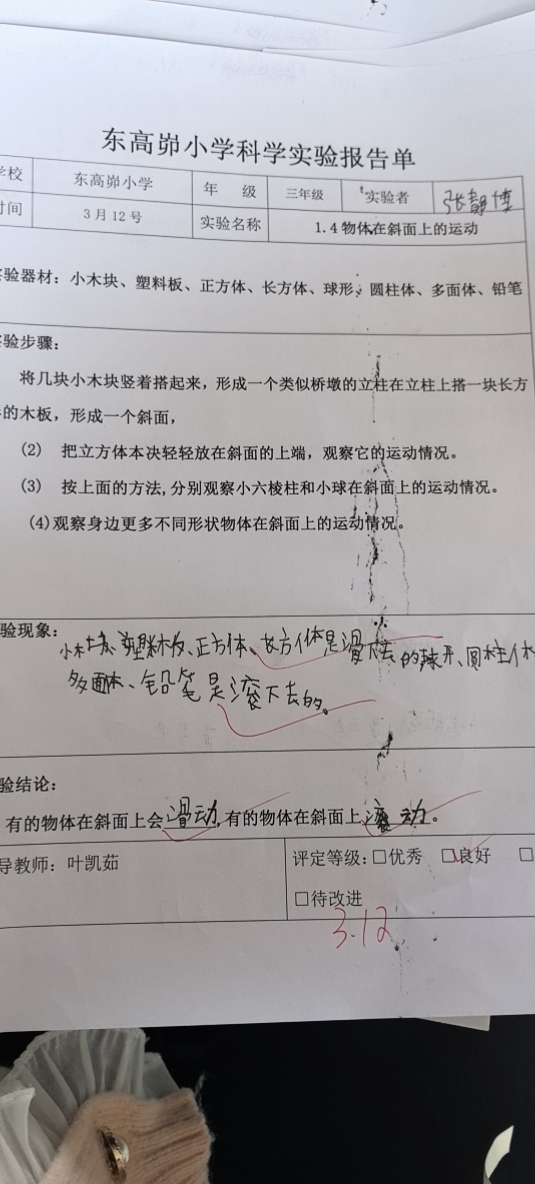 东高峁小学科学实验报告单
学校 东高峁小学 年 级 三年级 实验者 张静博
时间 3月12号 实验名称 1.4物体在斜面上的运动
验器材：小木块、塑料板、正方体、长方体、球形、圆柱体、多面体、铅笔
验步骤：
将几块小木块竖着搭起来，形成一个类似桥墩的立柱在立柱上搭一块长方
的木板，形成一个斜面，
(2) 把立方体本决轻轻放在斜面的上端，观察它的运动情况。
(3) 按上面的方法,分别观察小六棱柱和小球在斜面上的运动情况。
(4)观察身边更多不同形状物体在斜面上的运动情况。
验现象：
小木块、塑料板、正方体、长方体是滑下去的球形、圆柱体
多面体、铅笔是滚下去的。
验结论：
有的物体在斜面上会滑动,有的物体在斜面上滚动。
导教师：叶凯茹 评定等级：□优秀 □良好 □
□待改进
3.12